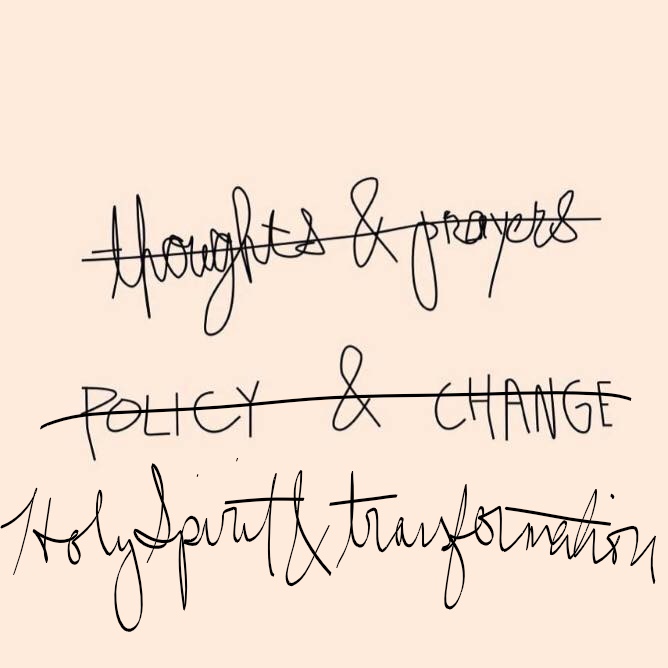 thoughts & prayers
POLICY & CHANGE
Holy Spirit & transformation